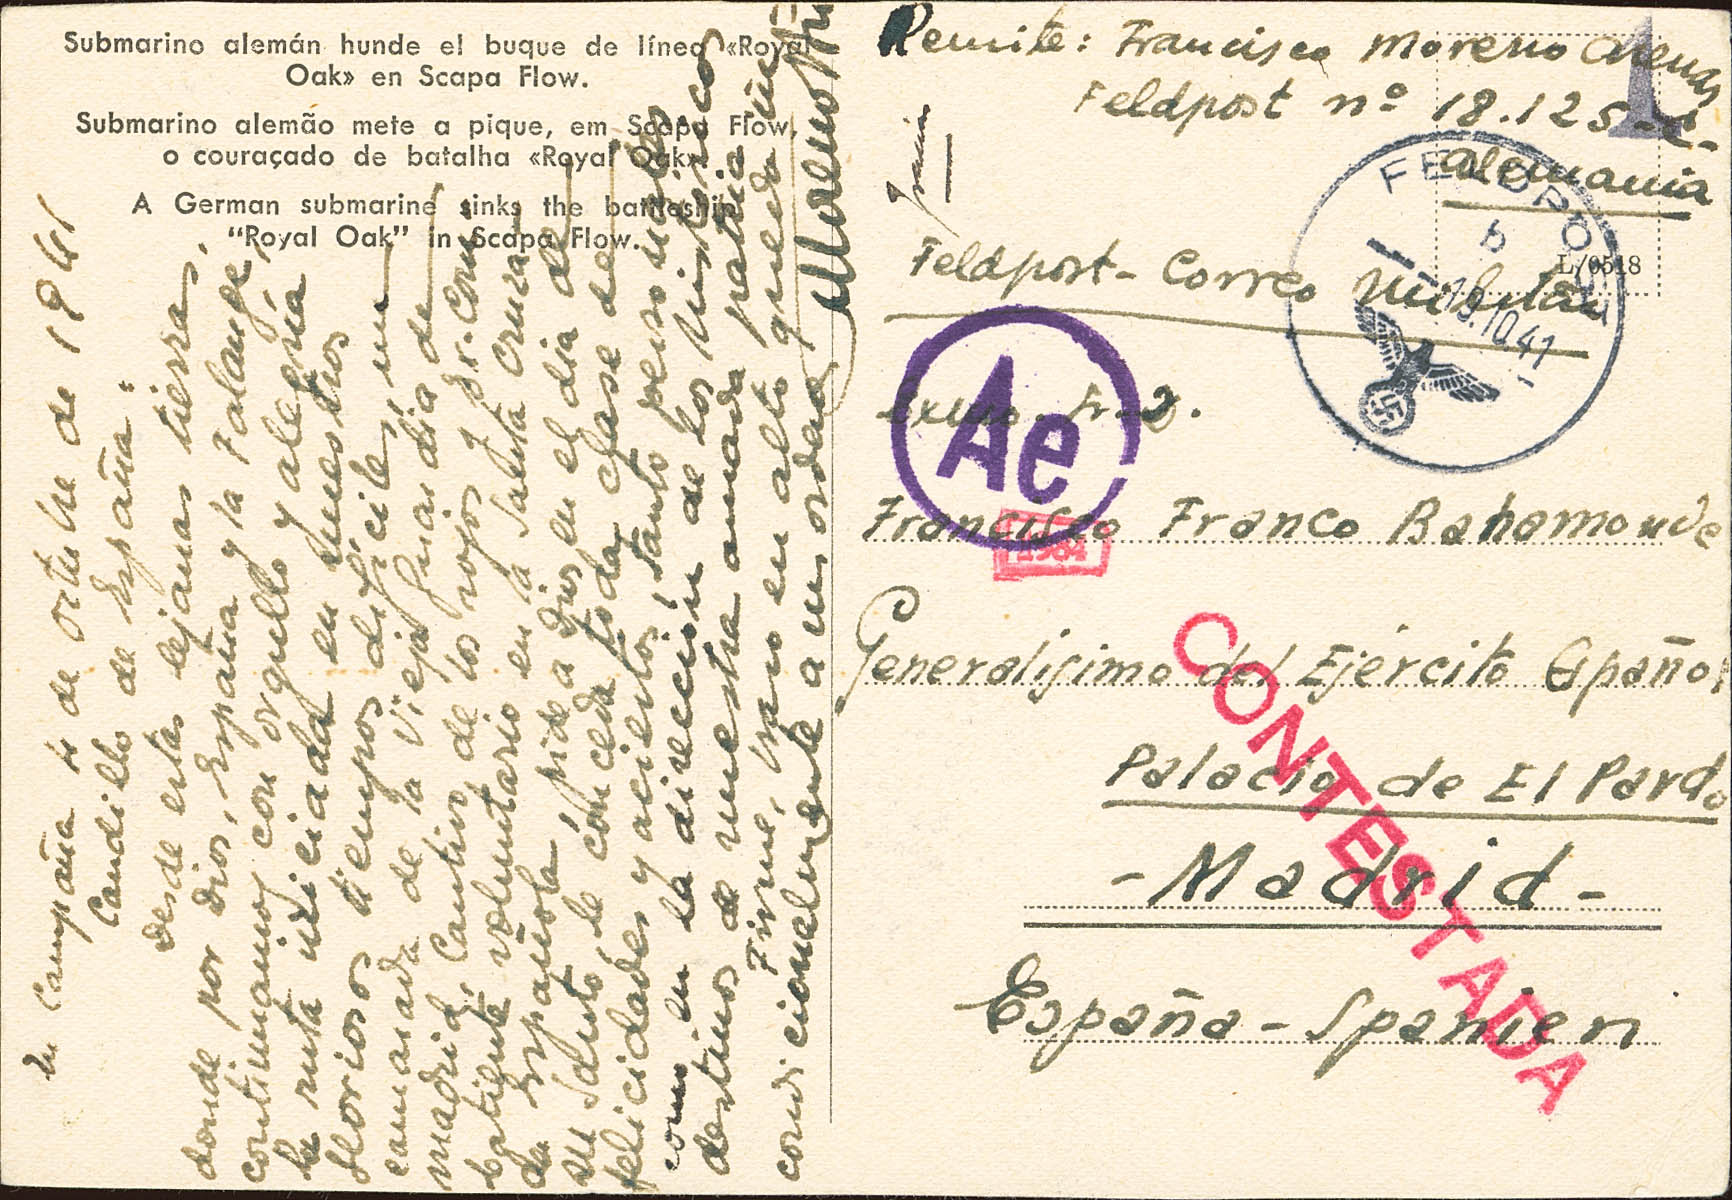 Submarino alemán hunde el buque de línea «Royal
Oak» en Scapa Flow.
Submarino alemão mete a pique, em Scapa Flow,
o couraçado de batalha «Royal Oak».
A German submarine sinks the battleship
“Royal Oak” in Scapa Flow.
En Campaña 4 de octubre de 1941
Caudillo de España:
Desde estas lejanas tierras,
donde por Dios, España y la Falange,
continuamos con orgullo y alegría
la ruta iniciada en nuestros
gloriosos tiempos difíciles, un
camarada de la Vieja Guardia de
Madrid, Cautivo de los rojos y Ex-Com-
batiente voluntario en la Santa Cruza-
da Española, pide a Dios en el día de
su Santo le conceda toda clase de
felicidades y aciertos, tanto personales
como en la dirección de los históricos
destinos de nuestra amada patria.
Firme, brazo en alto quedo
condicionalmente a sus ordenes
Moreno
Remite: Francisco Moreno Arenas
Feldpost nº 18.125-C-
Alemania
Feldpost - Correo Militar
L/0518
FELDPOST
b
19.10.41
Ae
1984
Excmo. Sr. D.
Francisco Franco Bahamonde
Generalísimo del Ejército Español
Palacio de El Pardo
- Madrid -
España - Spanien
CONTESTADA